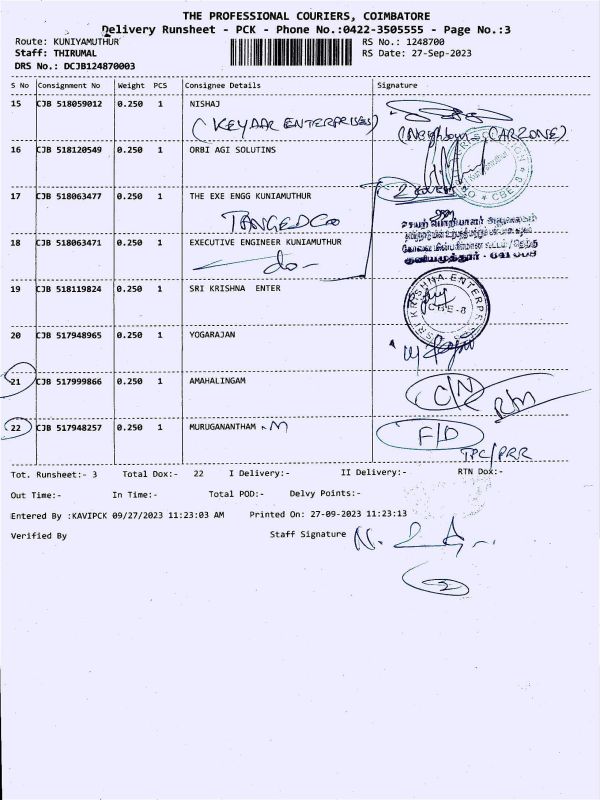 THE PROFESSIONAL COURIERS, COIMBATORE
Delivery Runsheet - PCK - Phone No.:0422-3505555 - Page No.:3
Route: KUNIYAMUTHUR RS No.: 1248700
Staff: THIRUMAL RS Date: 27-Sep-2023
DRS No.: DCJB124870003
S No Consignment No Weight PCS Consignee Details Signature
15 CJB 518059012 0.250 1 NISHAJ
(KEYAAR ENTERPRISES) (Neighbour (CARZONE)
16 CJB 518120549 0.250 1 ORBI AGI SOLUTINS
17 CJB 518063477 0.250 1 THE EXE ENGG KUNIAMUTHUR
TANGEDCO
18 CJB 518063471 0.250 1 EXECUTIVE ENGINEER KUNIAMUTHUR
do-
19 CJB 518119824 0.250 1 SRI KRISHNA ENTER
SRI KRISHNA ENTERPRISES
CBE-8
20 CJB 517948965 0.250 1 YOGARAJAN
21 CJB 517999866 0.250 1 AMAHALINGAM C/N
22 CJB 517948257 0.250 1 MURUGANANTHAM . M F/D
TPC/PRR
Tot. Runsheet:- 3 Total Dox:- 22 I Delivery:- II Delivery:- RTN Dox:-
Out Time:- In Time:- Total POD:- Delvy Points:-
Entered By :KAVIPCK 09/27/2023 11:23:03 AM Printed On: 27-09-2023 11:23:13
Verified By Staff Signature
2